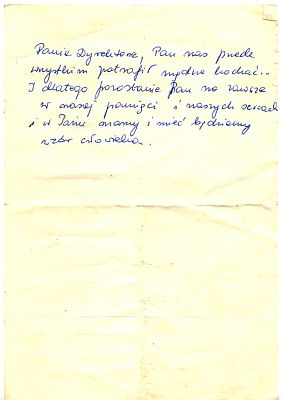 Panie Dyrektorze, Pan nas przede
wszystkim potrafił mądrze kochać...
I dlatego pozostanie Pan na zawsze
w naszej pamięci i naszych sercach
i w Panu mamy i mieć będziemy
wzór człowieka.